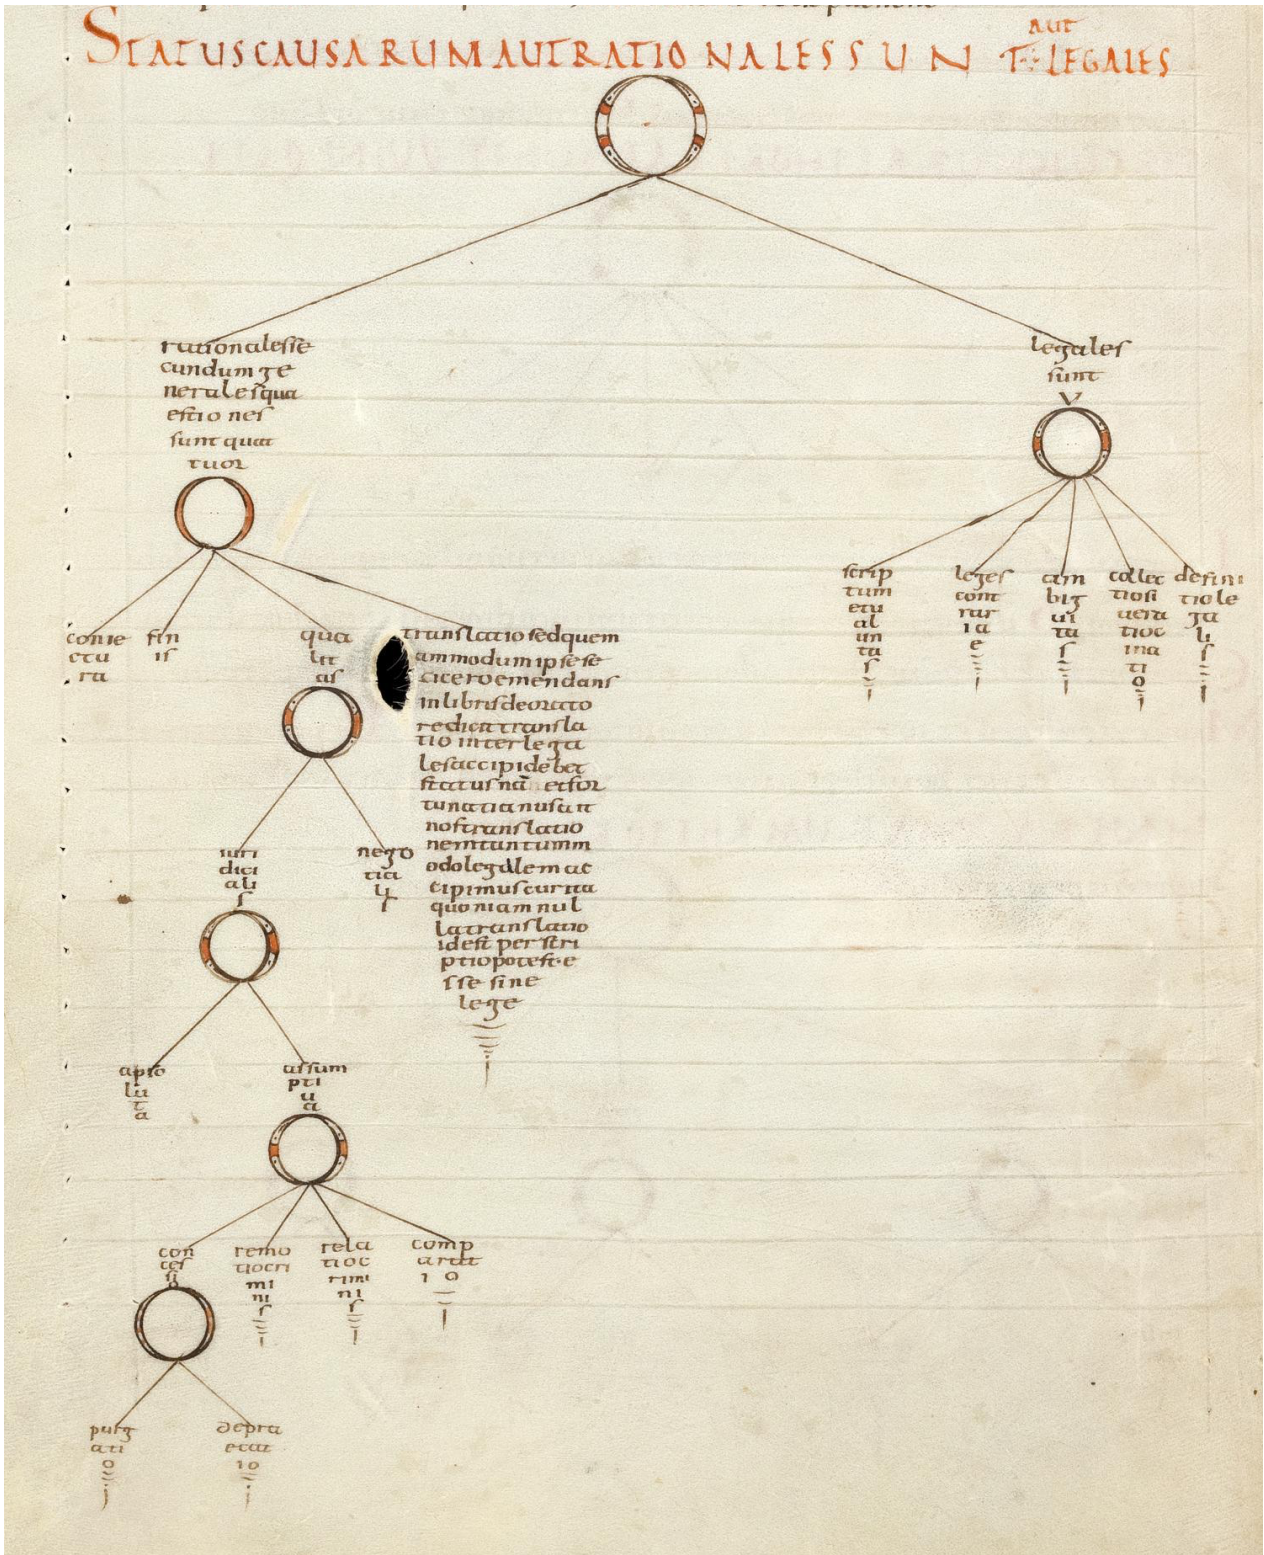 aut
STATUS CAUSARUM AUT RATIONALES SUNT LEGALES
rationalesse
cundum ge
nerales qua
estiones
sunt quat
tuor
legales
sunt
V
conie
ctu
ra
fin
is
qua
lit
as
translatio sed quem
ammodum ipse se
cicero emendans
in libris de orato
re dicit transla
tio inter lega
les accipi debet
status nā et for
tunatianus ait
nos translatio
nem tantumm
odo legalem ac
cipimus cur ita
quoniam nul
la translatio
id est perscri
ptio potest e
sse sine
lege
scrip
tum
etu
al
un
ta
s
leges
cont
rar
ia
e
am
big
ui
ta
s
collec
tiosi
uera
tioc
ina
ti
o
defini
tiole
ga
li
s
iuri
dici
ali
s
nego
tia
li
s
apso
lu
t
a
assum
pti
u
a
con
ces
si
o
remo
tiocri
mi
ni
s
rela
tioc
rimi
ni
s
comp
arat
io
purg
ati
o
depra
ecat
io